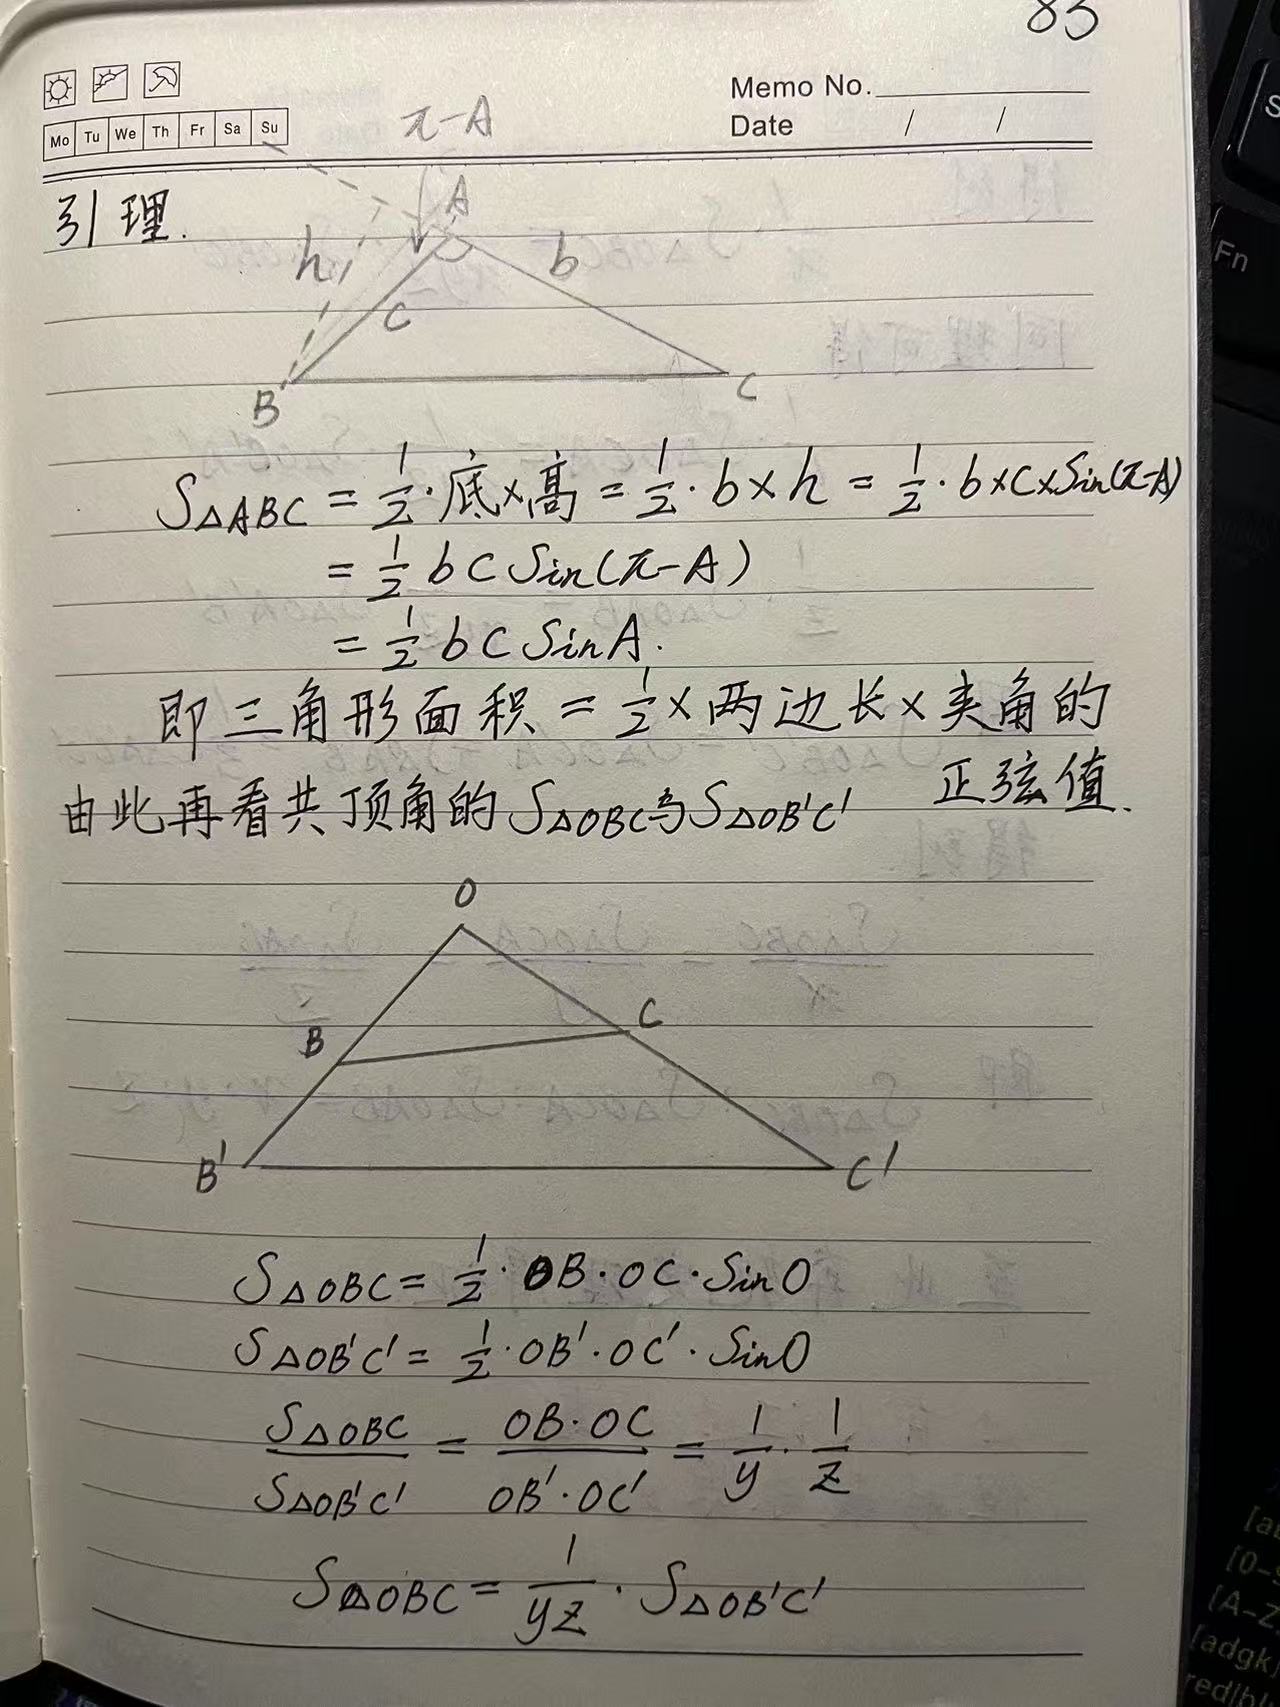 83
Memo No.
Mo Tu We Th Fr Sa Su
Date / /
π-A
引理.
A
h
b
c
B
C
S△ABC = 1/2·底×高 = 1/2·b×h = 1/2·b×c×Sin(π-A)
= 1/2 bc Sin(π-A)
= 1/2 bc SinA.
即三角形面积 = 1/2×两边长×夹角的
正弦值.
由此再看共顶角的S△OBC与S△OB'C'
O
B
C
B'
C'
S△OBC = 1/2·OB·OC·SinO
S△OB'C' = 1/2·OB'·OC'·SinO
S△OBC/S△OB'C' = OB·OC/OB'·OC' = 1/y·1/z
S△OBC = 1/yz·S△OB'C'
Fn